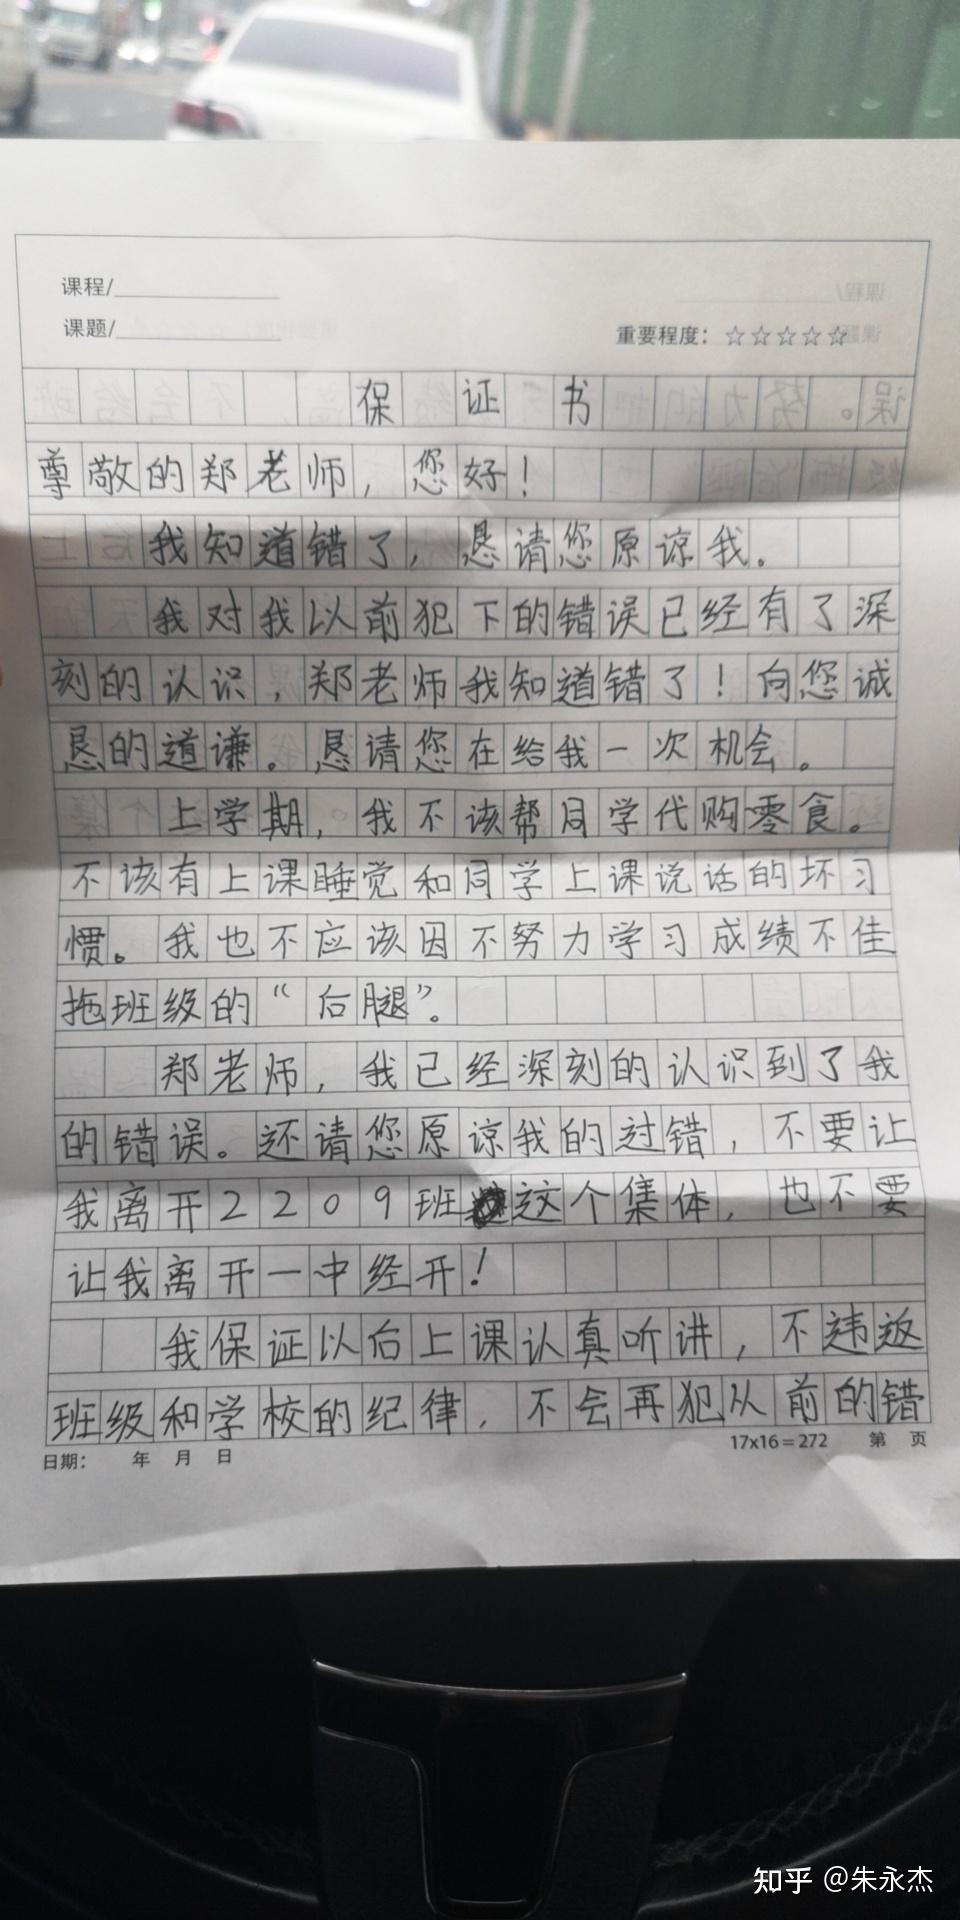 课程/
课题/
重要程度：☆☆☆☆☆
保证书
尊敬的郑老师，您好！
我知道错了，恳请您原谅我。
我对我以前犯下的错误已经有了深
刻的认识，郑老师我知道错了！向您诚
恳的道谦。恳请您在给我一次机会。
上学期，我不该帮同学代购零食。
不该有上课睡觉和同学上课说话的坏习
惯。我也不应该因不努力学习成绩不佳
拖班级的“后腿”。
郑老师，我已经深刻的认识到了我
的错误。还请您原谅我的过错，不要让
我离开2209班这个集体，也不要
让我离开一中经开！
我保证以后上课认真听讲，不违返
班级和学校的纪律，不会再犯从前的错
日期： 年 月 日
17x16=272 第 页
知乎 @朱永杰